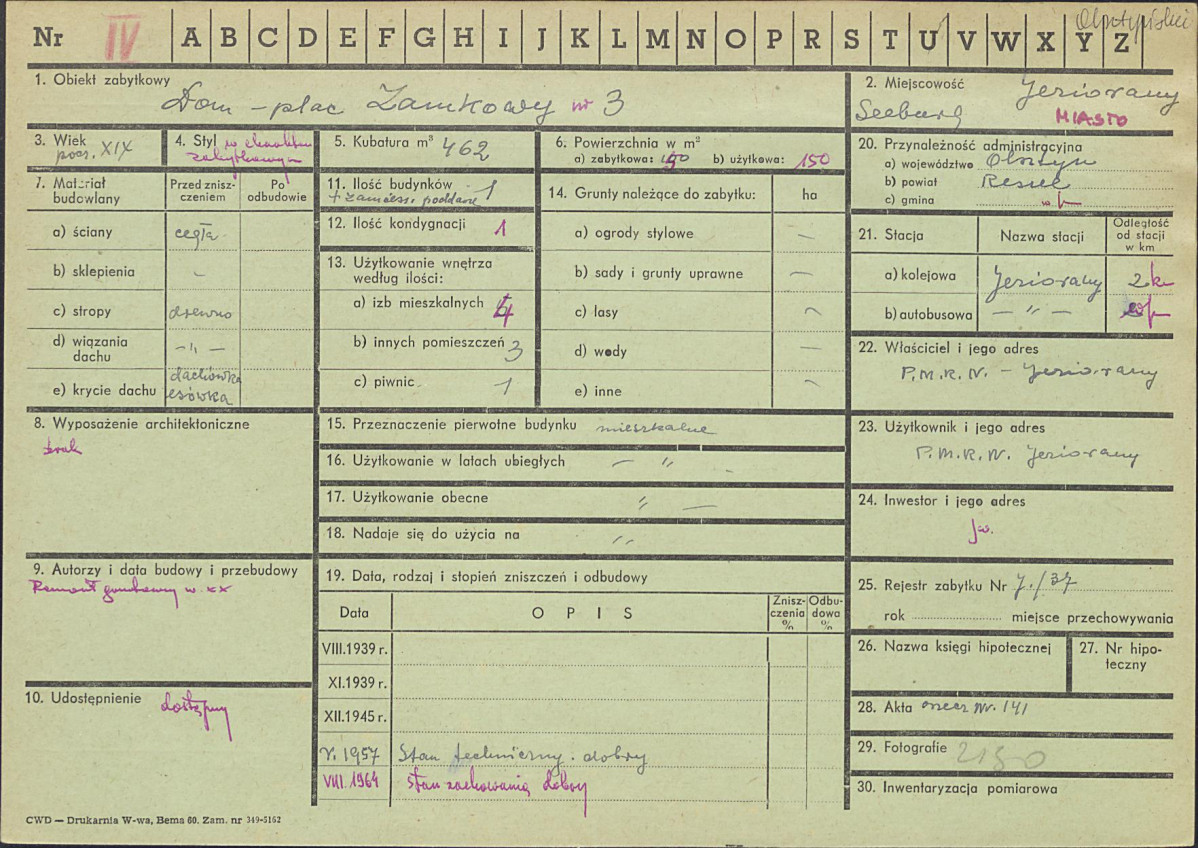 Olsztyński
Nr IV A B C D E F G H I J K L M N O P R S T U V W X Y Z
1. Obiekt zabytkowy
Dom - plac Zamkowy nr 3
2. Miejscowość Jeziorany
Seeburg MIASTO
3. Wiek
pocz. XIX
4. Styl
5. Kubatura m³ 462
6. Powierzchnia w m²
a) zabytkowa: 150 b) użytkowa: 150
7. Materiał budowlany
Przed zniszczeniem
Po odbudowie
a) ściany cegła
b) sklepienia –
c) stropy drewno
d) wiązania dachu –„–
e) krycie dachu dachówka esówka
8. Wyposażenie architektoniczne
brak
9. Autorzy i data budowy i przebudowy
Remont w. XX
10. Udostępnienie dostępny
11. Ilość budynków 1
+ zamieszk. poddasze
12. Ilość kondygnacji 1
13. Użytkowanie wnętrza według ilości:
a) izb mieszkalnych 4
b) innych pomieszczeń 3
c) piwnic 1
14. Grunty należące do zabytku: ha
a) ogrody stylowe –
b) sady i grunty uprawne –
c) lasy –
d) wody –
e) inne –
15. Przeznaczenie pierwotne budynku mieszkalne
16. Użytkowanie w latach ubiegłych – „ –
17. Użytkowanie obecne „ –
18. Nadaje się do użycia na „
19. Data, rodzaj i stopień zniszczeń i odbudowy
Data OPIS Zniszczenia % Odbudowa %
VIII.1939 r.
XI.1939 r.
XII.1945 r.
V. 1957 Stan techniczny dobry
VIII. 1964 stan zachowania dobry
20. Przynależność administracyjna
a) województwo Olsztyn
b) powiat Reszel
c) gmina w/m
21. Stacja Nazwa stacji Odległość od stacji w km
a) kolejowa Jeziorany 2 km
b) autobusowa – „ – w/m
22. Właściciel i jego adres
P.M.R.N. - Jeziorany
23. Użytkownik i jego adres
P.M.R.N. Jeziorany
24. Inwestor i jego adres
jw.
25. Rejestr zabytku Nr J./37
rok miejsce przechowywania
26. Nazwa księgi hipotecznej
27. Nr hipoteczny
28. Akta orzecz nr. 141
29. Fotografie 2150
30. Inwentaryzacja pomiarowa
CWD — Drukarnia W-wa, Bema 60. Zam. nr 349-5162